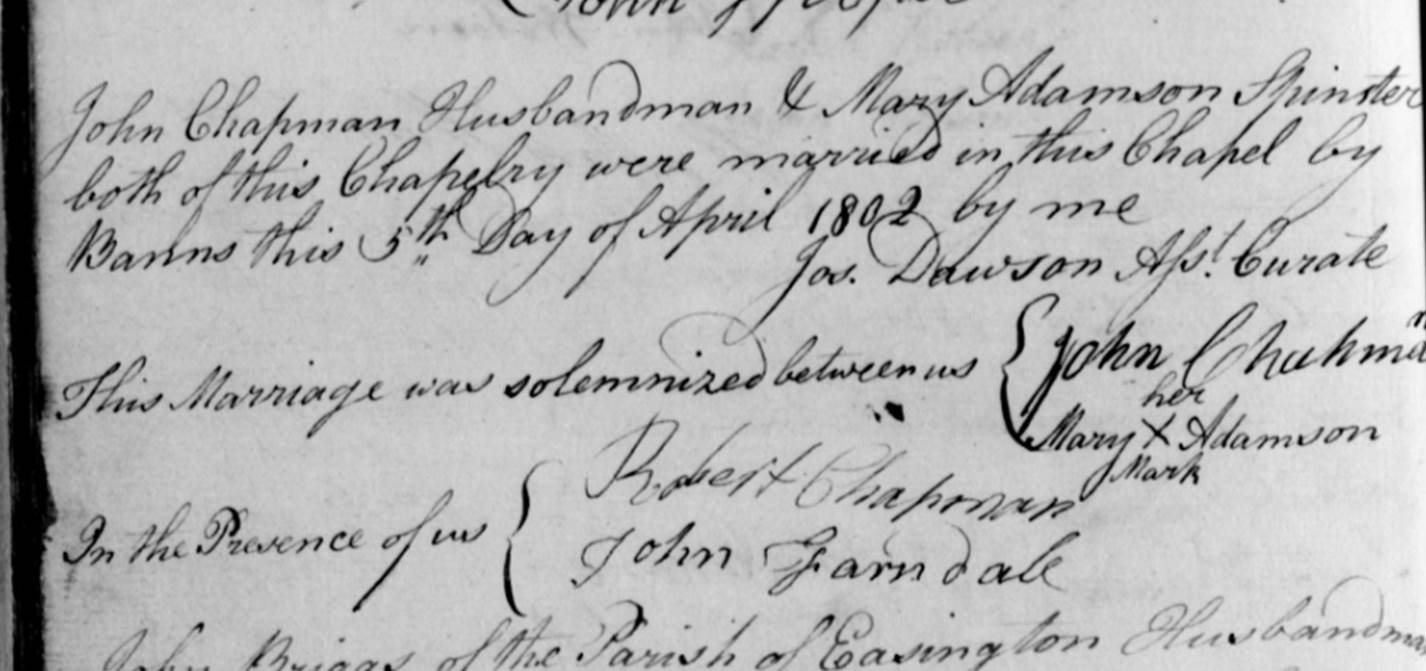 John
John Chapman Husbandman & Mary Adamson Spinster
both of this Chapelry were married in this Chapel by
Banns this 5th Day of April 1802 by me
Jos. Dawson Asst. Curate
This Marriage was solemnized between us { John
her
Mary X Adamson
Mark
In the Presence of us { Robert Chapman
John Farndale
John Briggs of the Parish of Easington